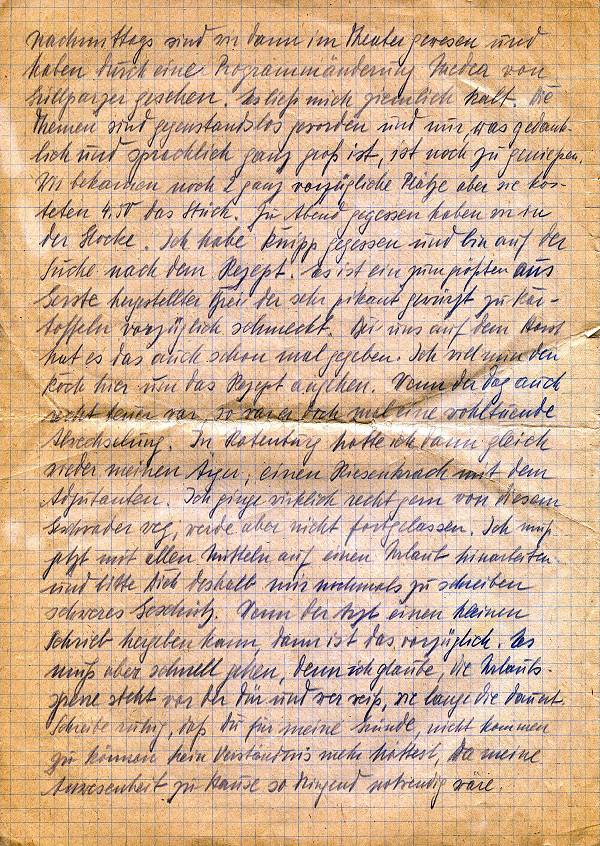 Nachmittags sind wir dann im Theater gewesen und
haben durch eine Programmänderung Medea von
Grillparzer gesehen. Es ließ mich ziemlich kalt. Die
Themen sind gegenstandslos geworden und nur, was gedank-
lich und sprachlich ganz groß ist, ist noch zu genießen.
Wir bekamen noch 2 ganz vorzügliche Plätze aber sie kos-
teten 4.50 das Stück. Zu Abend gegessen haben wir in
der Glocke. Ich habe Knipp gegessen und bin auf der
Suche nach dem Rezept. Es ist ein zum größten aus
Gerste hergestellter Brei der sehr pikant gewürzt zu Kar-
toffeln vorzüglich schmeckt. Bei uns auf dem
hat es das auch schon mal gegeben. Ich will nun den
Koch hier um das Rezept angehen. Wenn der Tag auch
recht teuer war, so war er doch mal eine wohltuende
Abwechselung. In Rotenburg hatte ich dann gleich
wieder meinen Ärger, einen Riesenkrach mit dem
Adjutanten. Ich ginge wirklich recht gern von diesem
Geschwader weg, werde aber nicht fortgelassen. Ich muß
jetzt mit allen Mitteln auf einen Urlaub hinarbeiten
und bitte Dich deshalb mir nochmals zu schreiben
schweres Geschütz. Wenn der Arzt einen kleinen
Schrieb hergeben kann, dann ist das vorzüglich. Es
muß aber schnell gehen, denn ich glaube, die Urlaubs-
sperre steht vor der Tür und wer weiß, wie lange die dauert.
Schreibe ruhig, daß Du für meine Gründe, nicht kommen
zu können kein Verständnis mehr hättest, da meine
Anwesenheit zu Hause so dringend notwendig wäre.